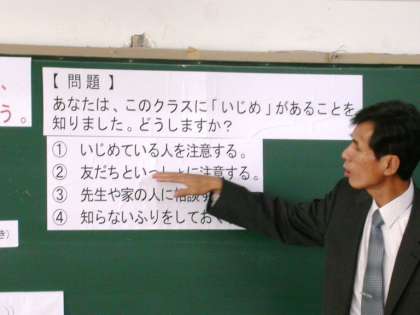 【問題】
あなたは、このクラスに「いじめ」があることを
知りました。どうしますか？
① いじめている人を注意する。
② 友だちといっしょに注意する。
③ 先生や家の人に相談す
④ 知らないふりをしておく
、
う。
き）